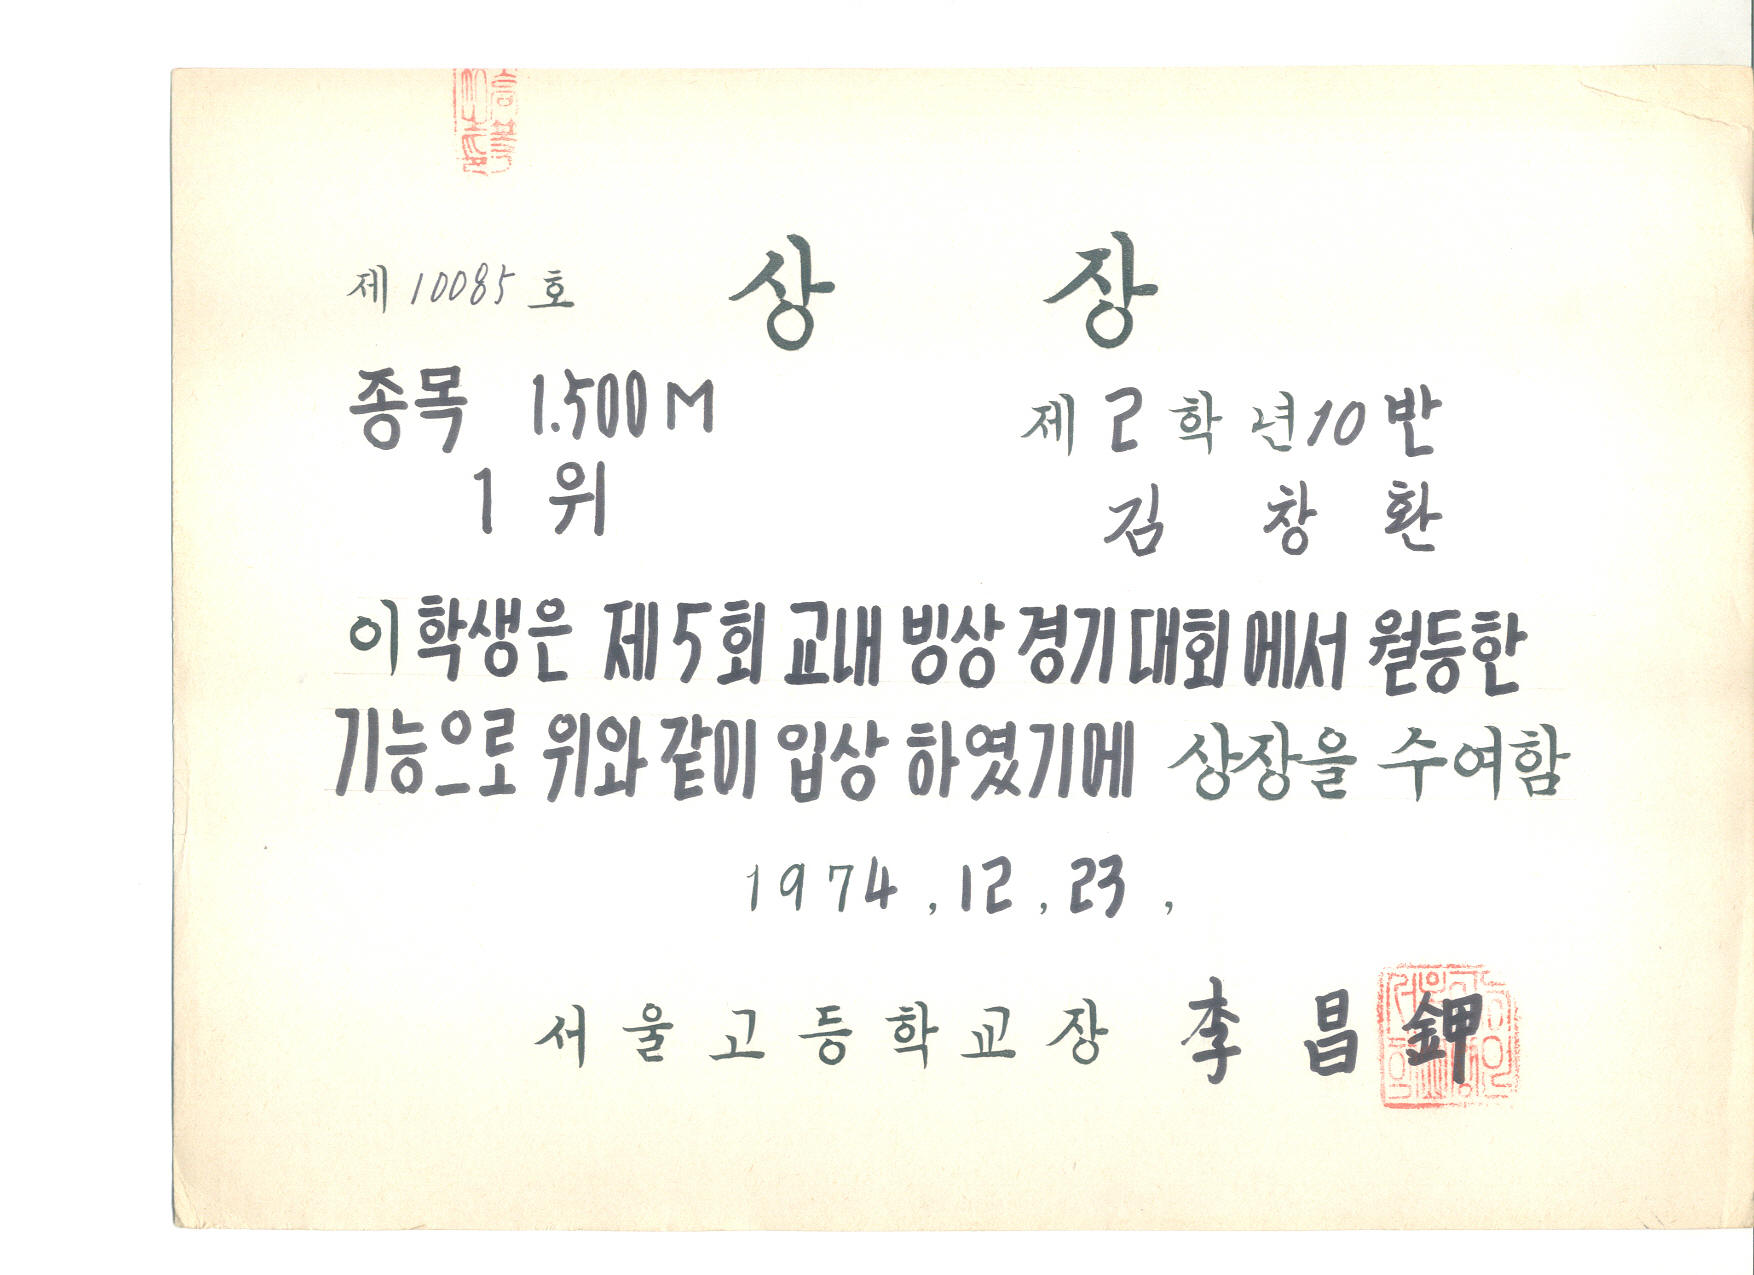 제 10085 호
상 장
종목 1.500M
1 위
제 2 학년 10 반
김 창 환
이 학생은 제5회 교내 빙상 경기 대회에서 월등한
기능으로 위와 같이 입상 하였기에 상장을 수여함
1974, 12, 23,
서울고등학교장 李昌鉀